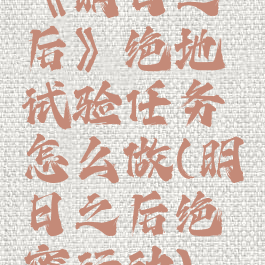 《明日之
后》绝地
试验任务
怎么做(明
日之后绝
密行动)